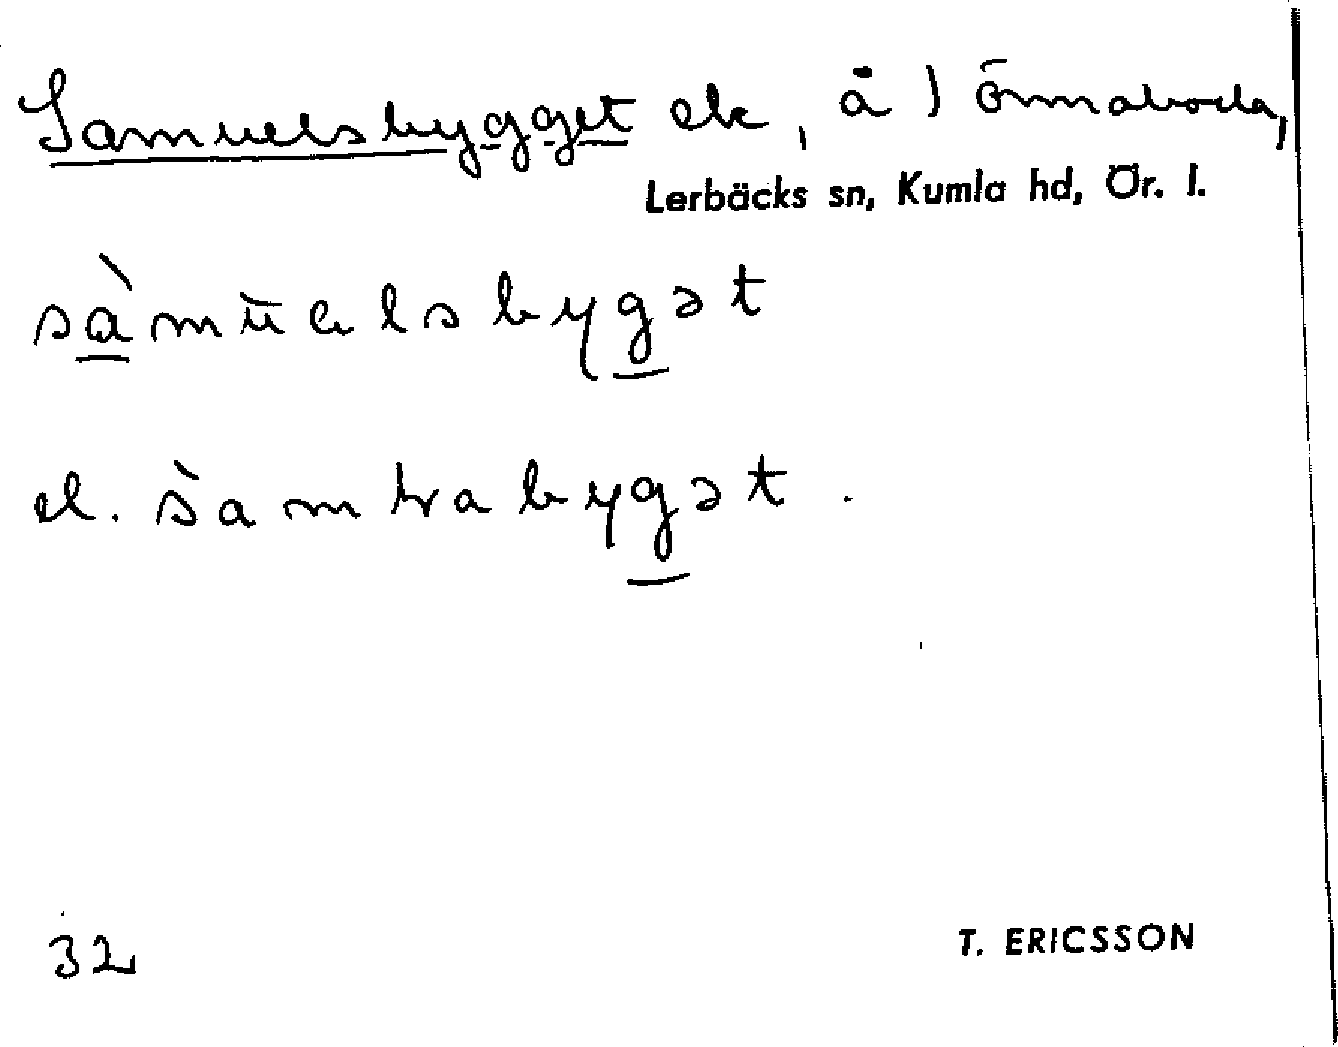 Samuelsbygget ek, å 1 Önnaboda,
Lerbäcks sn, Kumla hd, Ör. l.
sàmūelsbygət
el. sàmtrabygət.
32
T. ERICSSON